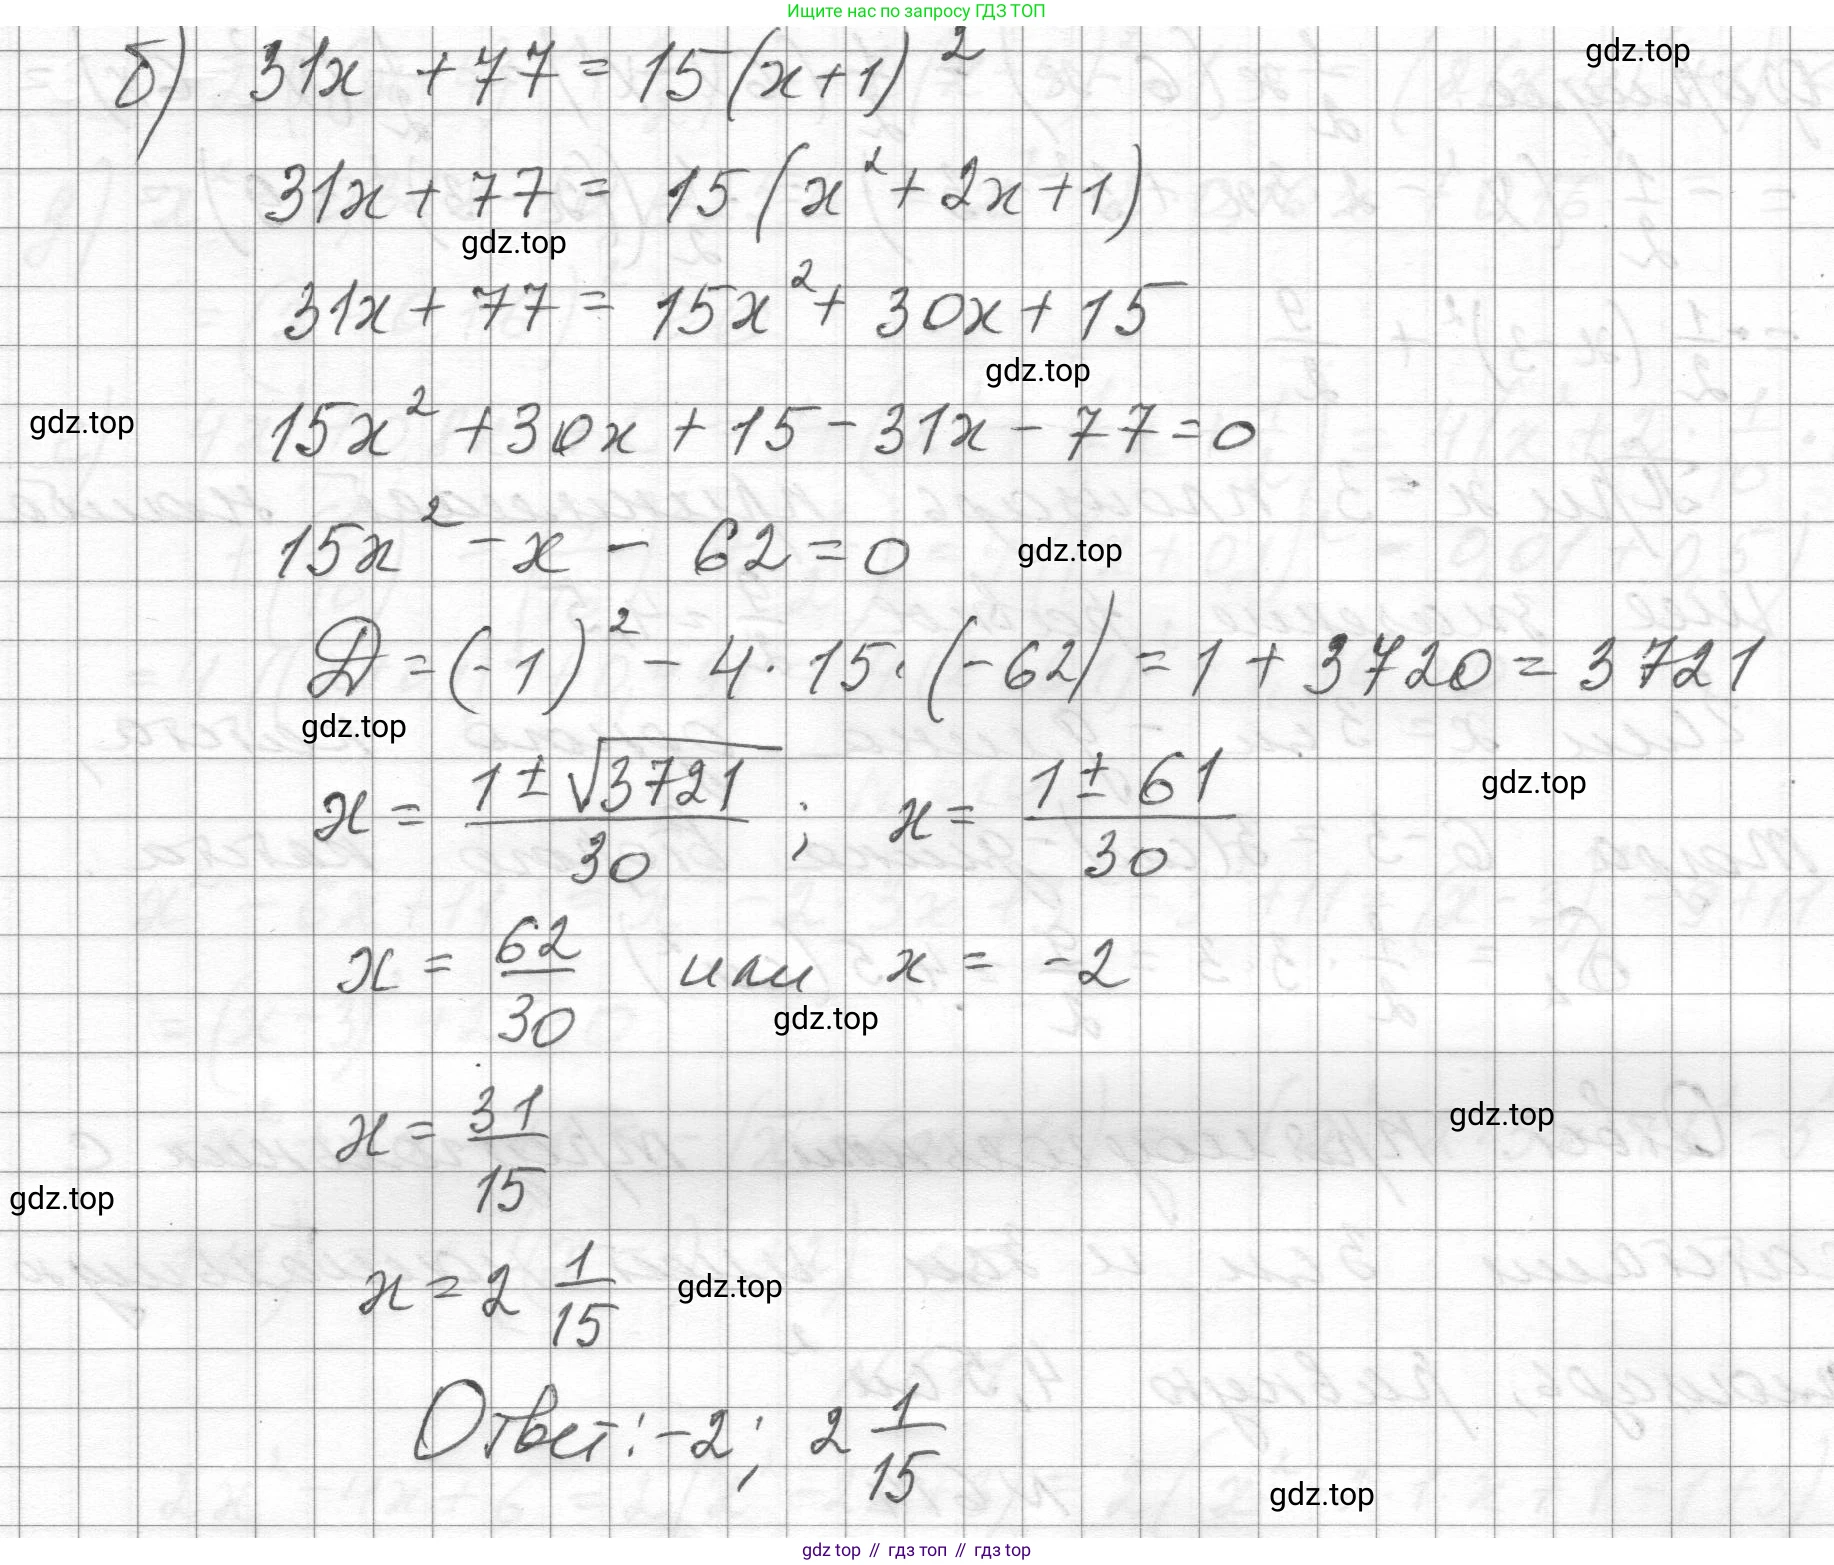 Ищите нас по запросу ГДЗ ТОП
б) 31x + 77 = 15(x+1)²
gdz.top
31x + 77 = 15(x² + 2x + 1)
gdz.top
31x + 77 = 15x² + 30x + 15
gdz.top
gdz.top
15x² + 30x + 15 - 31x - 77 = 0
15x² - x - 62 = 0
gdz.top
D = (-1)² - 4 · 15 · (-62) = 1 + 3720 = 3721
gdz.top
x = (1 ± √3721)/30 ; x = (1 ± 61)/30
gdz.top
x = 62/30 или x = -2
gdz.top
x = 31/15
gdz.top
gdz.top
x = 2 1/15
gdz.top
Ответ: -2; 2 1/15
gdz.top
gdz top // гдз топ // гдз top